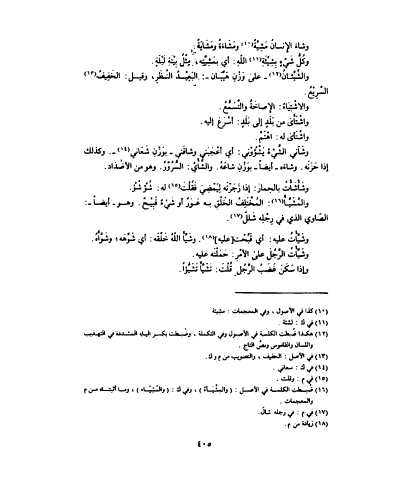 وشاءَ الإنسانُ مَشِيْئَةً(١٠) ومَشَاءَةً ومَشَايَةً.
وكُلُّ شَيْءٍ بِشِيْئَةِ(١١) اللهِ: أي بمَشِيْئَتِه، مِثْلُ بِيْئَةِ لَيْلَةٍ.
والشَّيِّئانُ(١٢) ـ على وَزْنِ هَيَّبَان ـ: البَعِيْدُ النَّظَرِ، وقيل: الخَفِيفُ(١٣)
السَّرِيْعُ.
والاشْتِيَاءُ: الإِصَاخَةُ والتَّسَمُّعُ.
واشْتَأَىٰ من بَلَدٍ إلى بَلَدٍ: أسْرَعَ إليه.
واشْتَأَىٰ له: اهْتَمَّ.
وشَآني الشَّيْءُ يَشُؤْوُني: أي أعْجَبَني وشاقَني ـ بوَزْنِ شَعَاني(١٤) ـ. وكذلك
إذا حَزَنَه. وشاءَه ـ أيضاً ـ بوَزْنِ شاعَهُ. والشَّأْيُ: السُّرُوْرُ. وهو من الأضْدَاد.
وشَأْشَأْتُ بالحِمارِ: إذا زَجَرْتَه لِيَمْضِيَ فقُلْتَ(١٥) له: شُؤْ شُؤْ.
والمُشَيَّأُ(١٦): المُخْتَلِفُ الخَلْقِ به عَوَرٌ أو شَيْءٌ قَبِيحٌ. وهو ـ أيضاً ـ:
الضّاوي الذي في رِجْلِه شَلَلٌ(١٧).
وشَيَّأْتُ عليه: أي قَبَّحْتُ [عليه](١٨). وشَيَّأَ اللهُ خَلْقَه: أي شَوَّهَه؛ وشَوَّأَه.
وشَيَّأْتُ الرَّجُلَ على الأمْرِ: حَمَلْتَه عليه.
وإذا سَكَنَ غَضَبُ الرَّجُلِ قُلْتَ: تَشَيَّأَ تَشَيُّؤاً.
(١٠) كذا في الأصول، وفي المعجمات: مشيئة
(١١) في ك: لشئة.
(١٢) هكذا ضُبطت الكلمة في الأصول وفي التكملة، وضُبطت بكسر الياء المشددة في التهذيب
واللسان والقاموس ونصِّ التاج.
(١٣) في الأصل: الحفيف، والتصويب من م وك.
(١٤) في ك: سعاني.
(١٥) في م: وقلت.
(١٦) ضُبطت الكلمة في الأصل: (والمِشْيَأَة)، وفي ك: (والمَشْيَاء)، وما أثبتناه من م
والمعجمات.
(١٧) في م: في رجله شالّ.
(١٨) زيادة من م.
٤٠٥